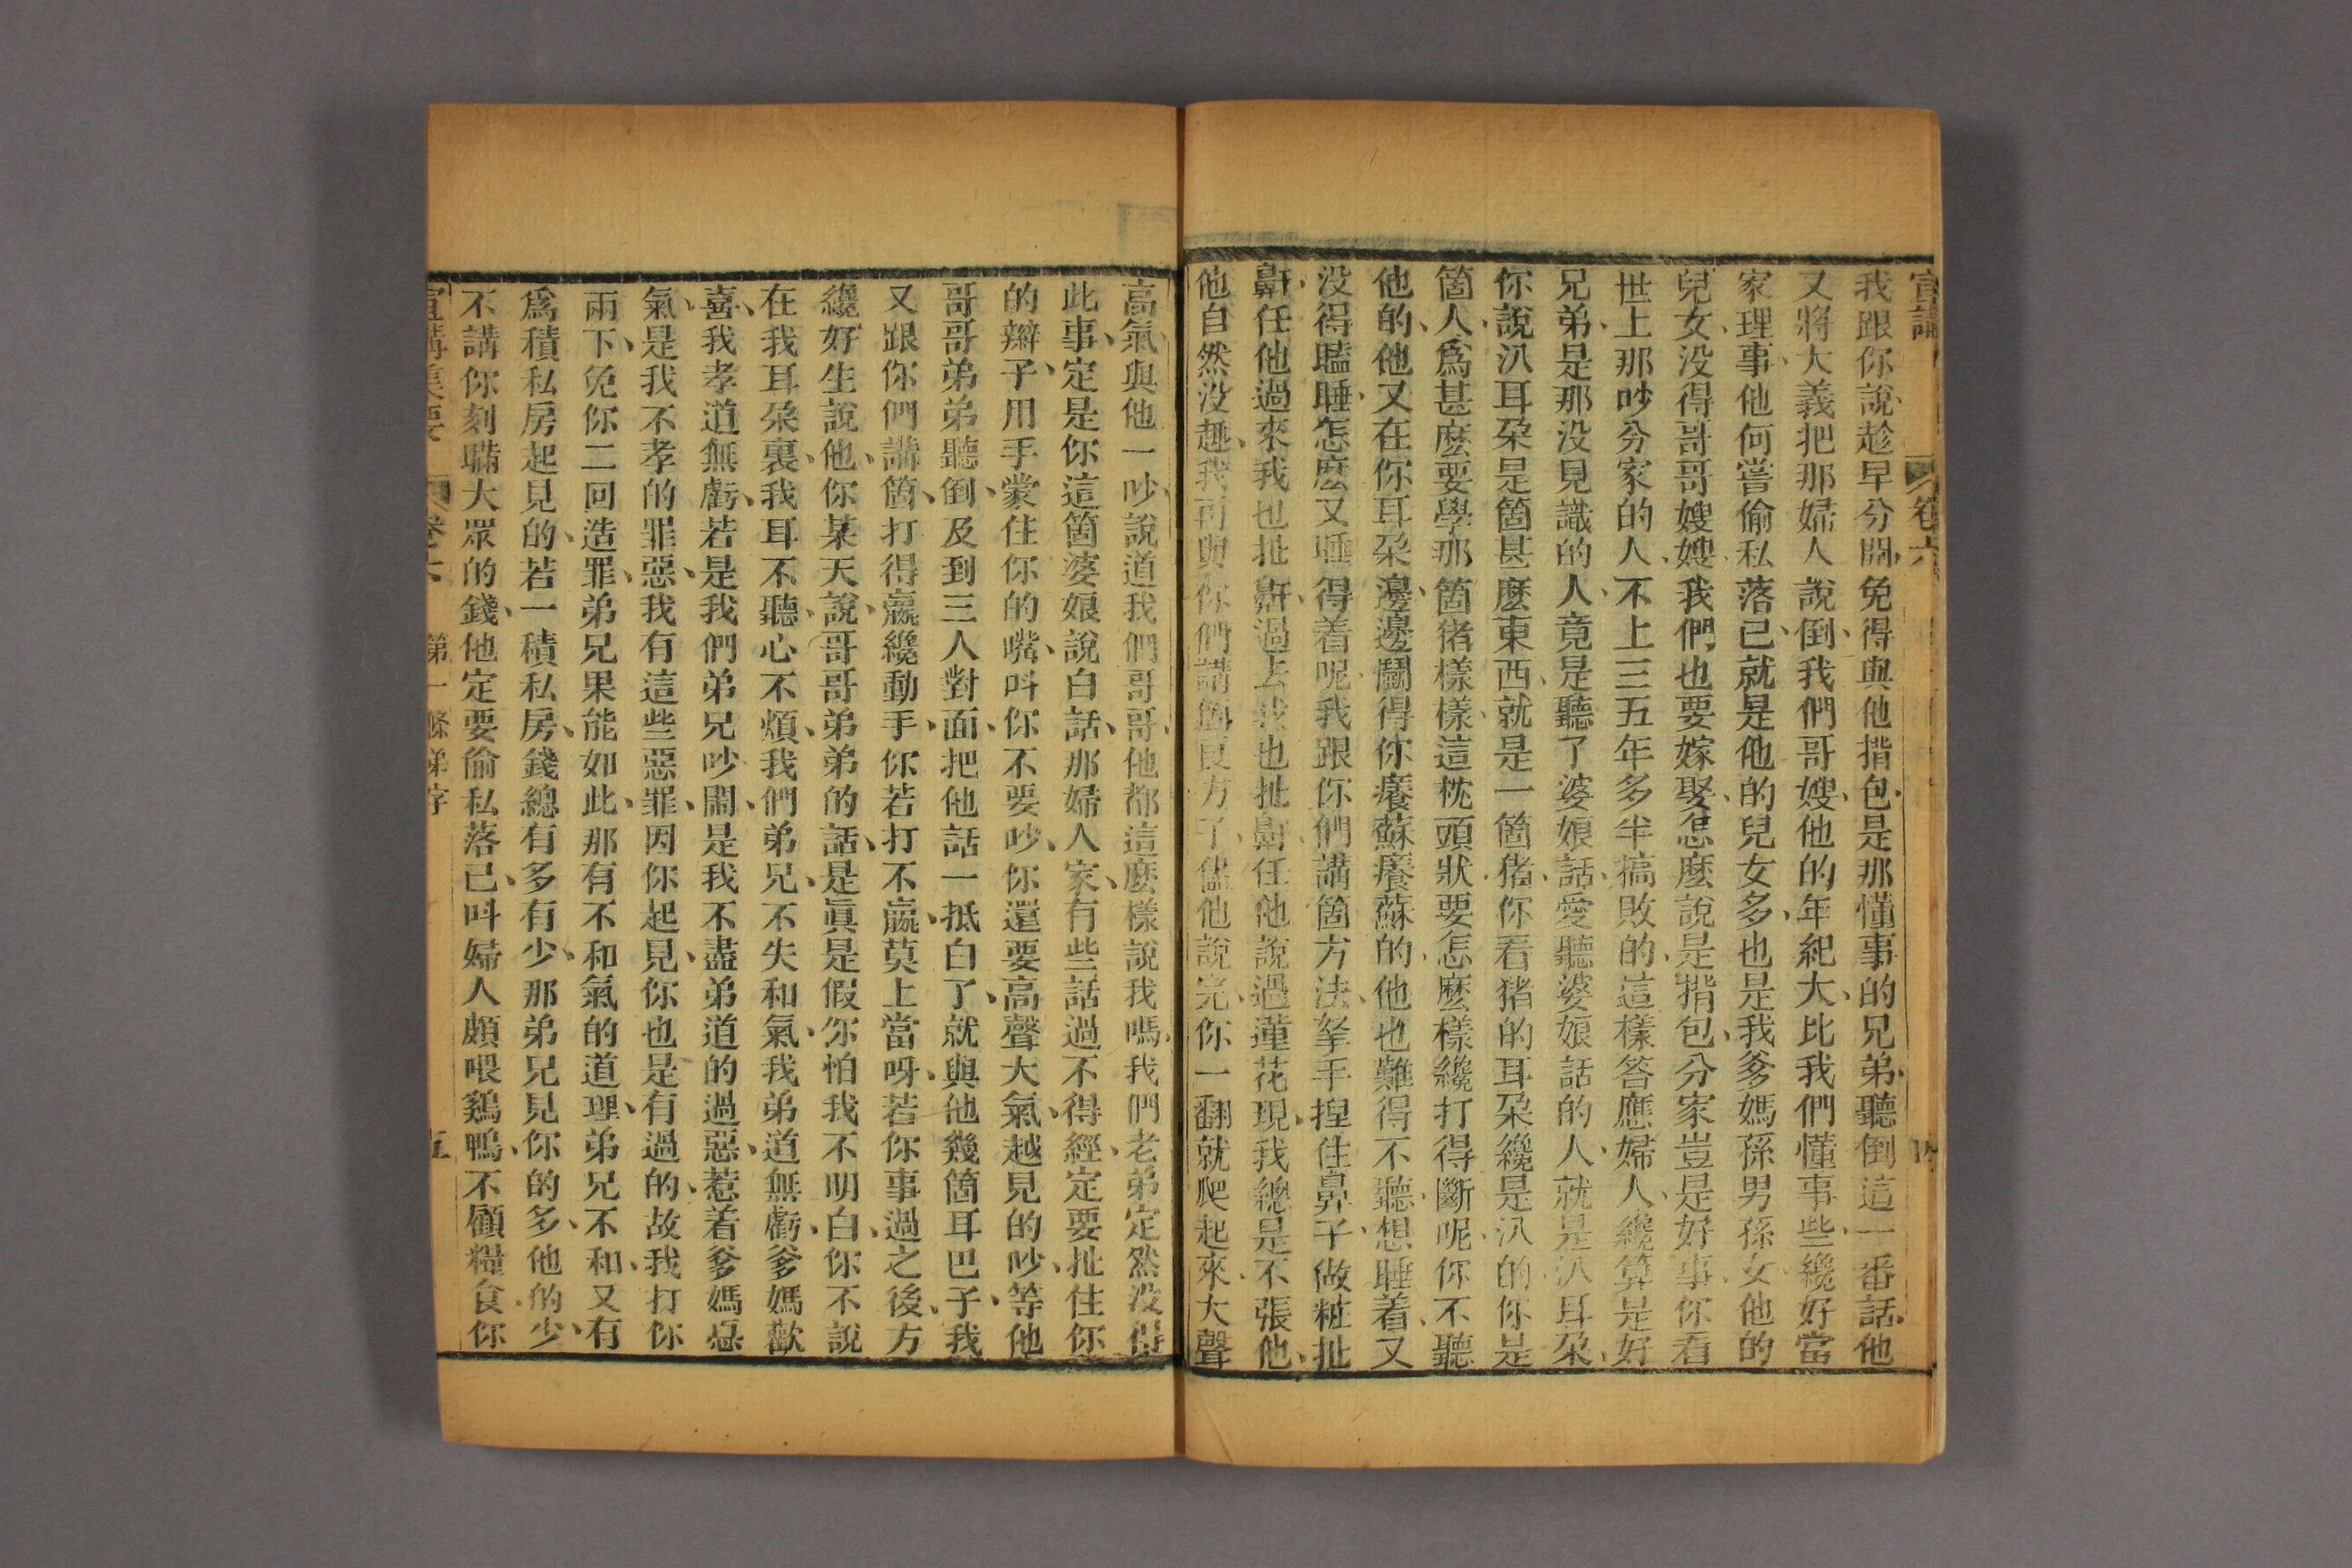 宣講 卷六
我跟你說趁早分開免得與他揹包是那懂事的兄弟聽倒這一番話他
又將大義把那婦人說倒我們哥嫂他的年紀大比我們懂事些纔好當
家理事他何嘗偷私落己就是他的兒女多也是我爹媽孫男孫女他的
兒女没得哥哥嫂嫂我們也要嫁娶怎麽說是揹包分家豈是好事你看
世上那吵分家的人不上三五年多半搞敗的這樣答應婦人纔算是好
兄弟是那没見識的人竟是聽了婆娘話愛聽婆娘話的人就是汃耳朶
你說汃耳朶是箇甚麽東西就是一箇猪你看猪的耳朶纔是汃的你是
箇人爲甚麽要學那箇猪樣樣這枕頭狀要怎麽樣纔打得斷呢你不聽
他的他又在你耳朶邊邊鬭得你癢蘇癢蘇的他也難得不聽想睡着又
没得瞌睡怎麽又睡得着呢我跟你們講箇方法拏手揑住鼻子做粧扯
鼾任他過來我也扯鼾過去我也扯鼾任他說過蓮花現我總是不張他
他自然没趣我再與你們講箇良方了儘他說完你一翻就爬起來大聲
高氣與他一吵說道我們哥哥他都這麽樣說我嗎我們老弟定然没得
此事定是你這箇婆娘說白話那婦人家有些話過不得經定要扯住你
的辮子用手蒙住你的嘴呌你不要吵你還要高聲大氣越見的吵等他
哥哥弟弟聽倒及到三人對面把他話一抵白了就與他幾箇耳巴子我
又跟你們講箇打得贏纔動手你若打不贏莫上當呀若你事過之後方
纔好生說他你某天說哥哥弟弟的話是眞是假你怕我不明白你不說
在我耳朶裏我耳不聽心不煩我們弟兄不失和氣我弟道無虧爹媽歡
喜我孝道無虧若是我們弟兄吵鬧是我不盡弟道的過惡惹着爹媽慪
氣是我不孝的罪惡我有這些惡罪因你起見你也是有過的故我打你
兩下免你二回造罪弟兄果能如此那有不和氣的道理弟兄不和又有
爲積私房起見的若一積私房錢總有多有少那弟兄見你的多他的少
不講你刻瞞大眾的錢他定要偷私落己呌婦人頗喂鷄鴨不顧糧食你
宣講集要 卷六 第一條 五